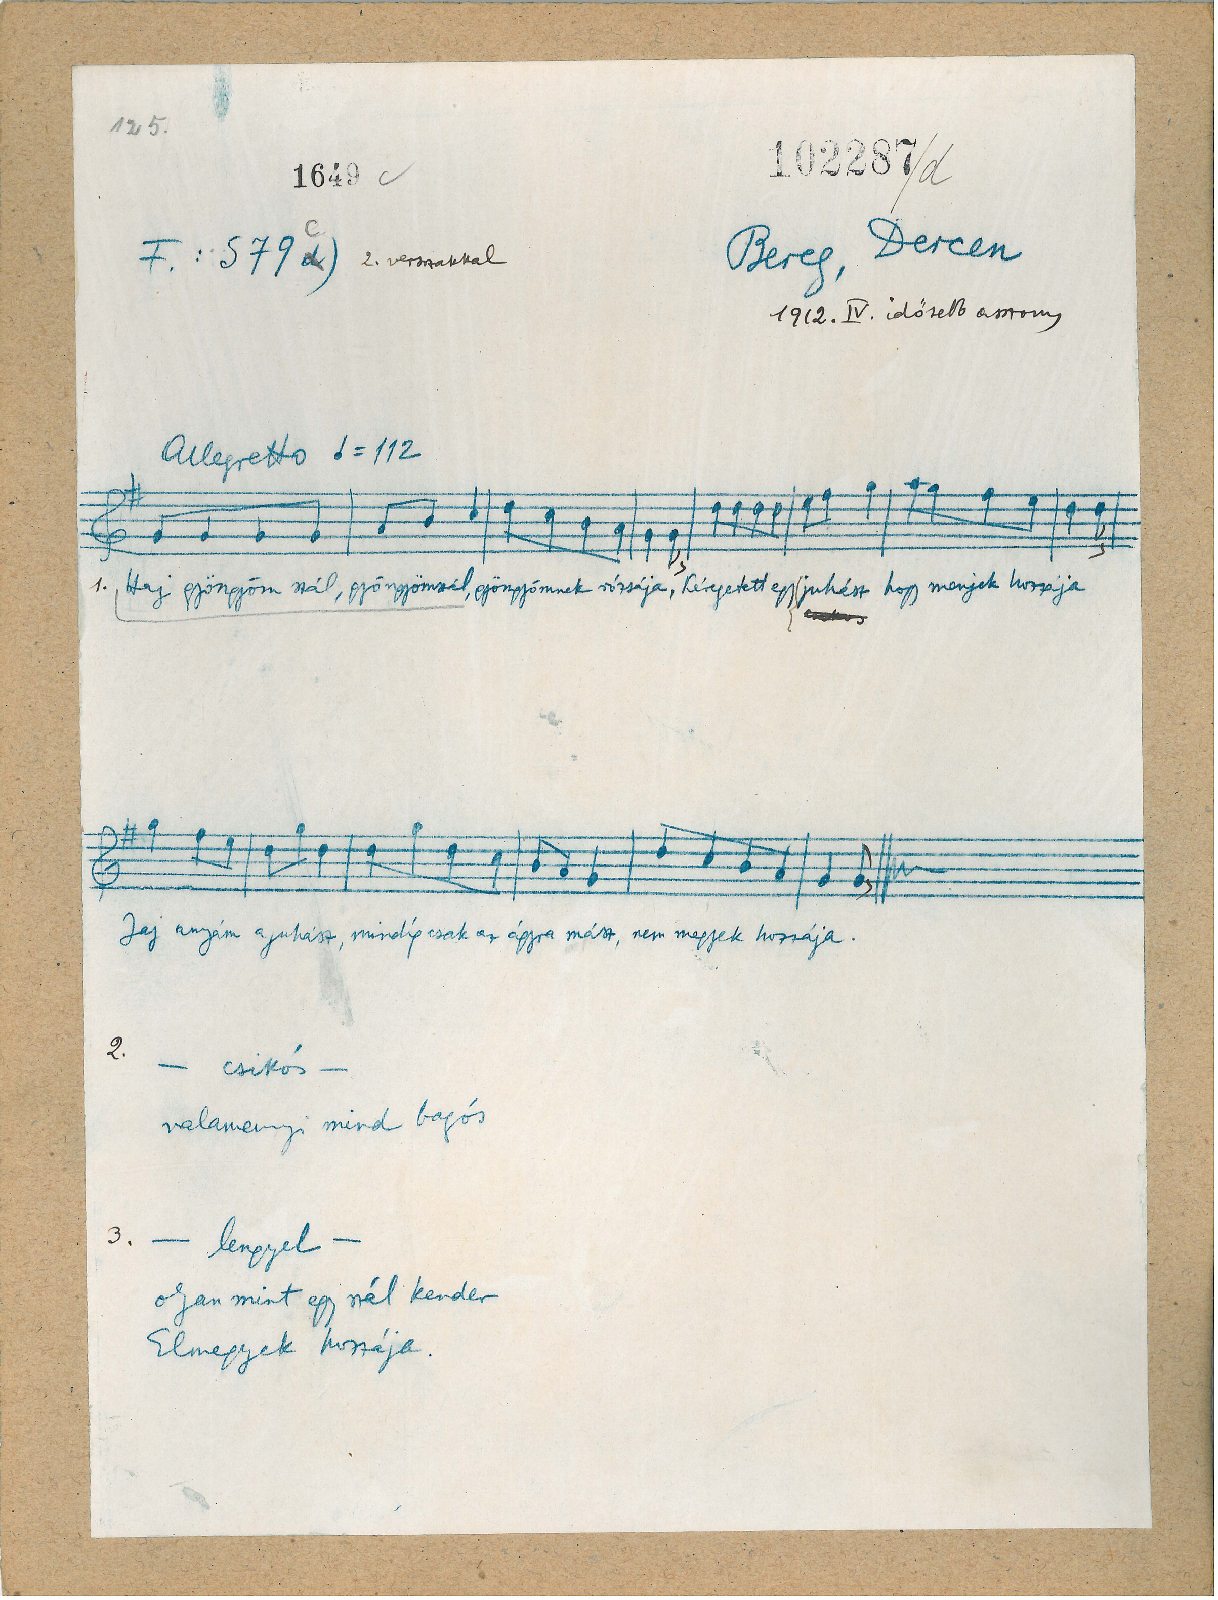 125.
1649 c
102287/d
F. : 579 c) 2. versszakkal
Bereg, Dercen
1912. IV. idősebb asszony
Allegretto ♩ = 112
1. Haj gyöngyöm szál, gyöngyömszál, gyöngyömnek rózsája, Kéregetett egy juhász hogy menjek hozzája
Jaj anyám a juhász, mindíg csak az ágyra mász, nem megyek hozzája.
2. — csikós —
valamennyi mind bagós
3. — lengyel —
olyan mint egy szál kender
Elmegyek hozzája.